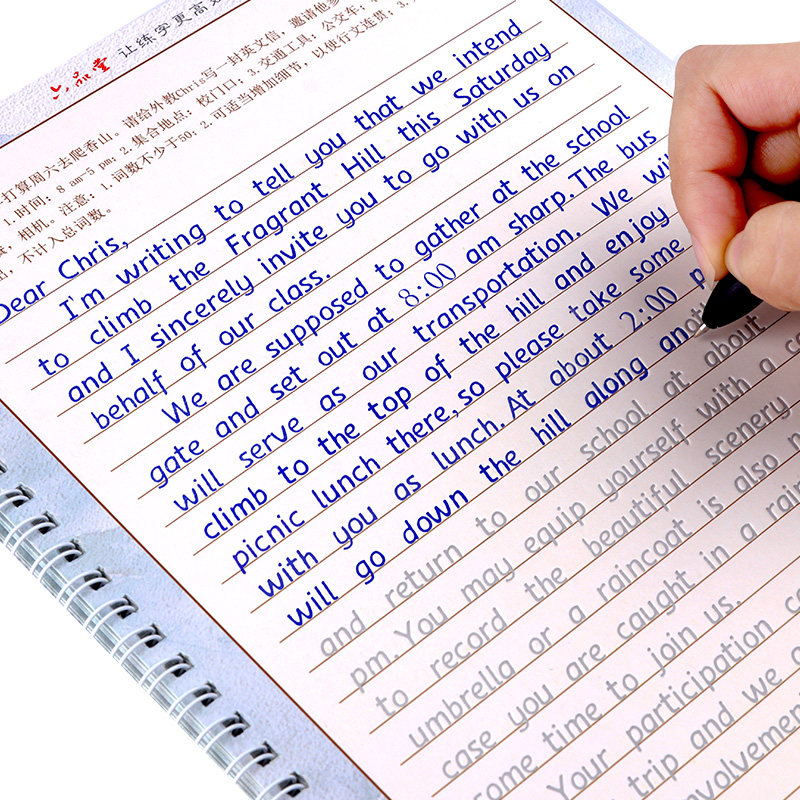 六品堂 让练字更高
打算周六去爬香山。请给外教Chris写一封英文信，邀请他
1.时间：8 am-5 pm；2.集合地点：校门口；3.交通工具：公交车；
相机。注意：1.词数不少于50；2.可适当增加细节，以使行文连贯；3.
不计入总词数。
Dear Chris,
I'm writing to tell you that we intend
to climb the Fragrant Hill this Saturday
and I sincerely invite you to go with us on
behalf of our class.
We are supposed to gather at the school
gate and set out at 8:00 am sharp. The bus
will serve as our transportation. We will
climb to the top of the hill and enjoy
picnic lunch there, so please take some
with you as lunch. At about 2:00 p
will go down the hill along another
and return to our school at about
pm. You may equip yourself with a ca
to record the beautiful scenery
umbrella or a raincoat is also
case you are caught in a rain
some time to join us.
Your participation
trip and we
involvement